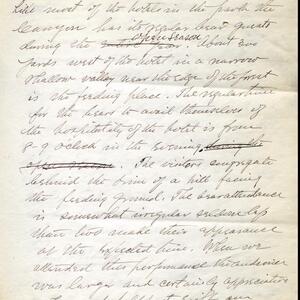 Like most of the hotels in the park the
Canyon has its regular bear guests
during the open season. About 200
yards west of the hotel in a narrow
shallow valley near the edge of the forest
is the feeding place. The regular time
for the bears to avail themselves of
the hospitality of the hotel is from
8-9 o'clock in the evening
The visitors congregate
behind the brim of a hill facing
the feeding ground. The bear attendance
is somewhat irregular seldom less
than two made their appearance
at the expected time. When we
attended this performance the audience
was large and certainly appreciative